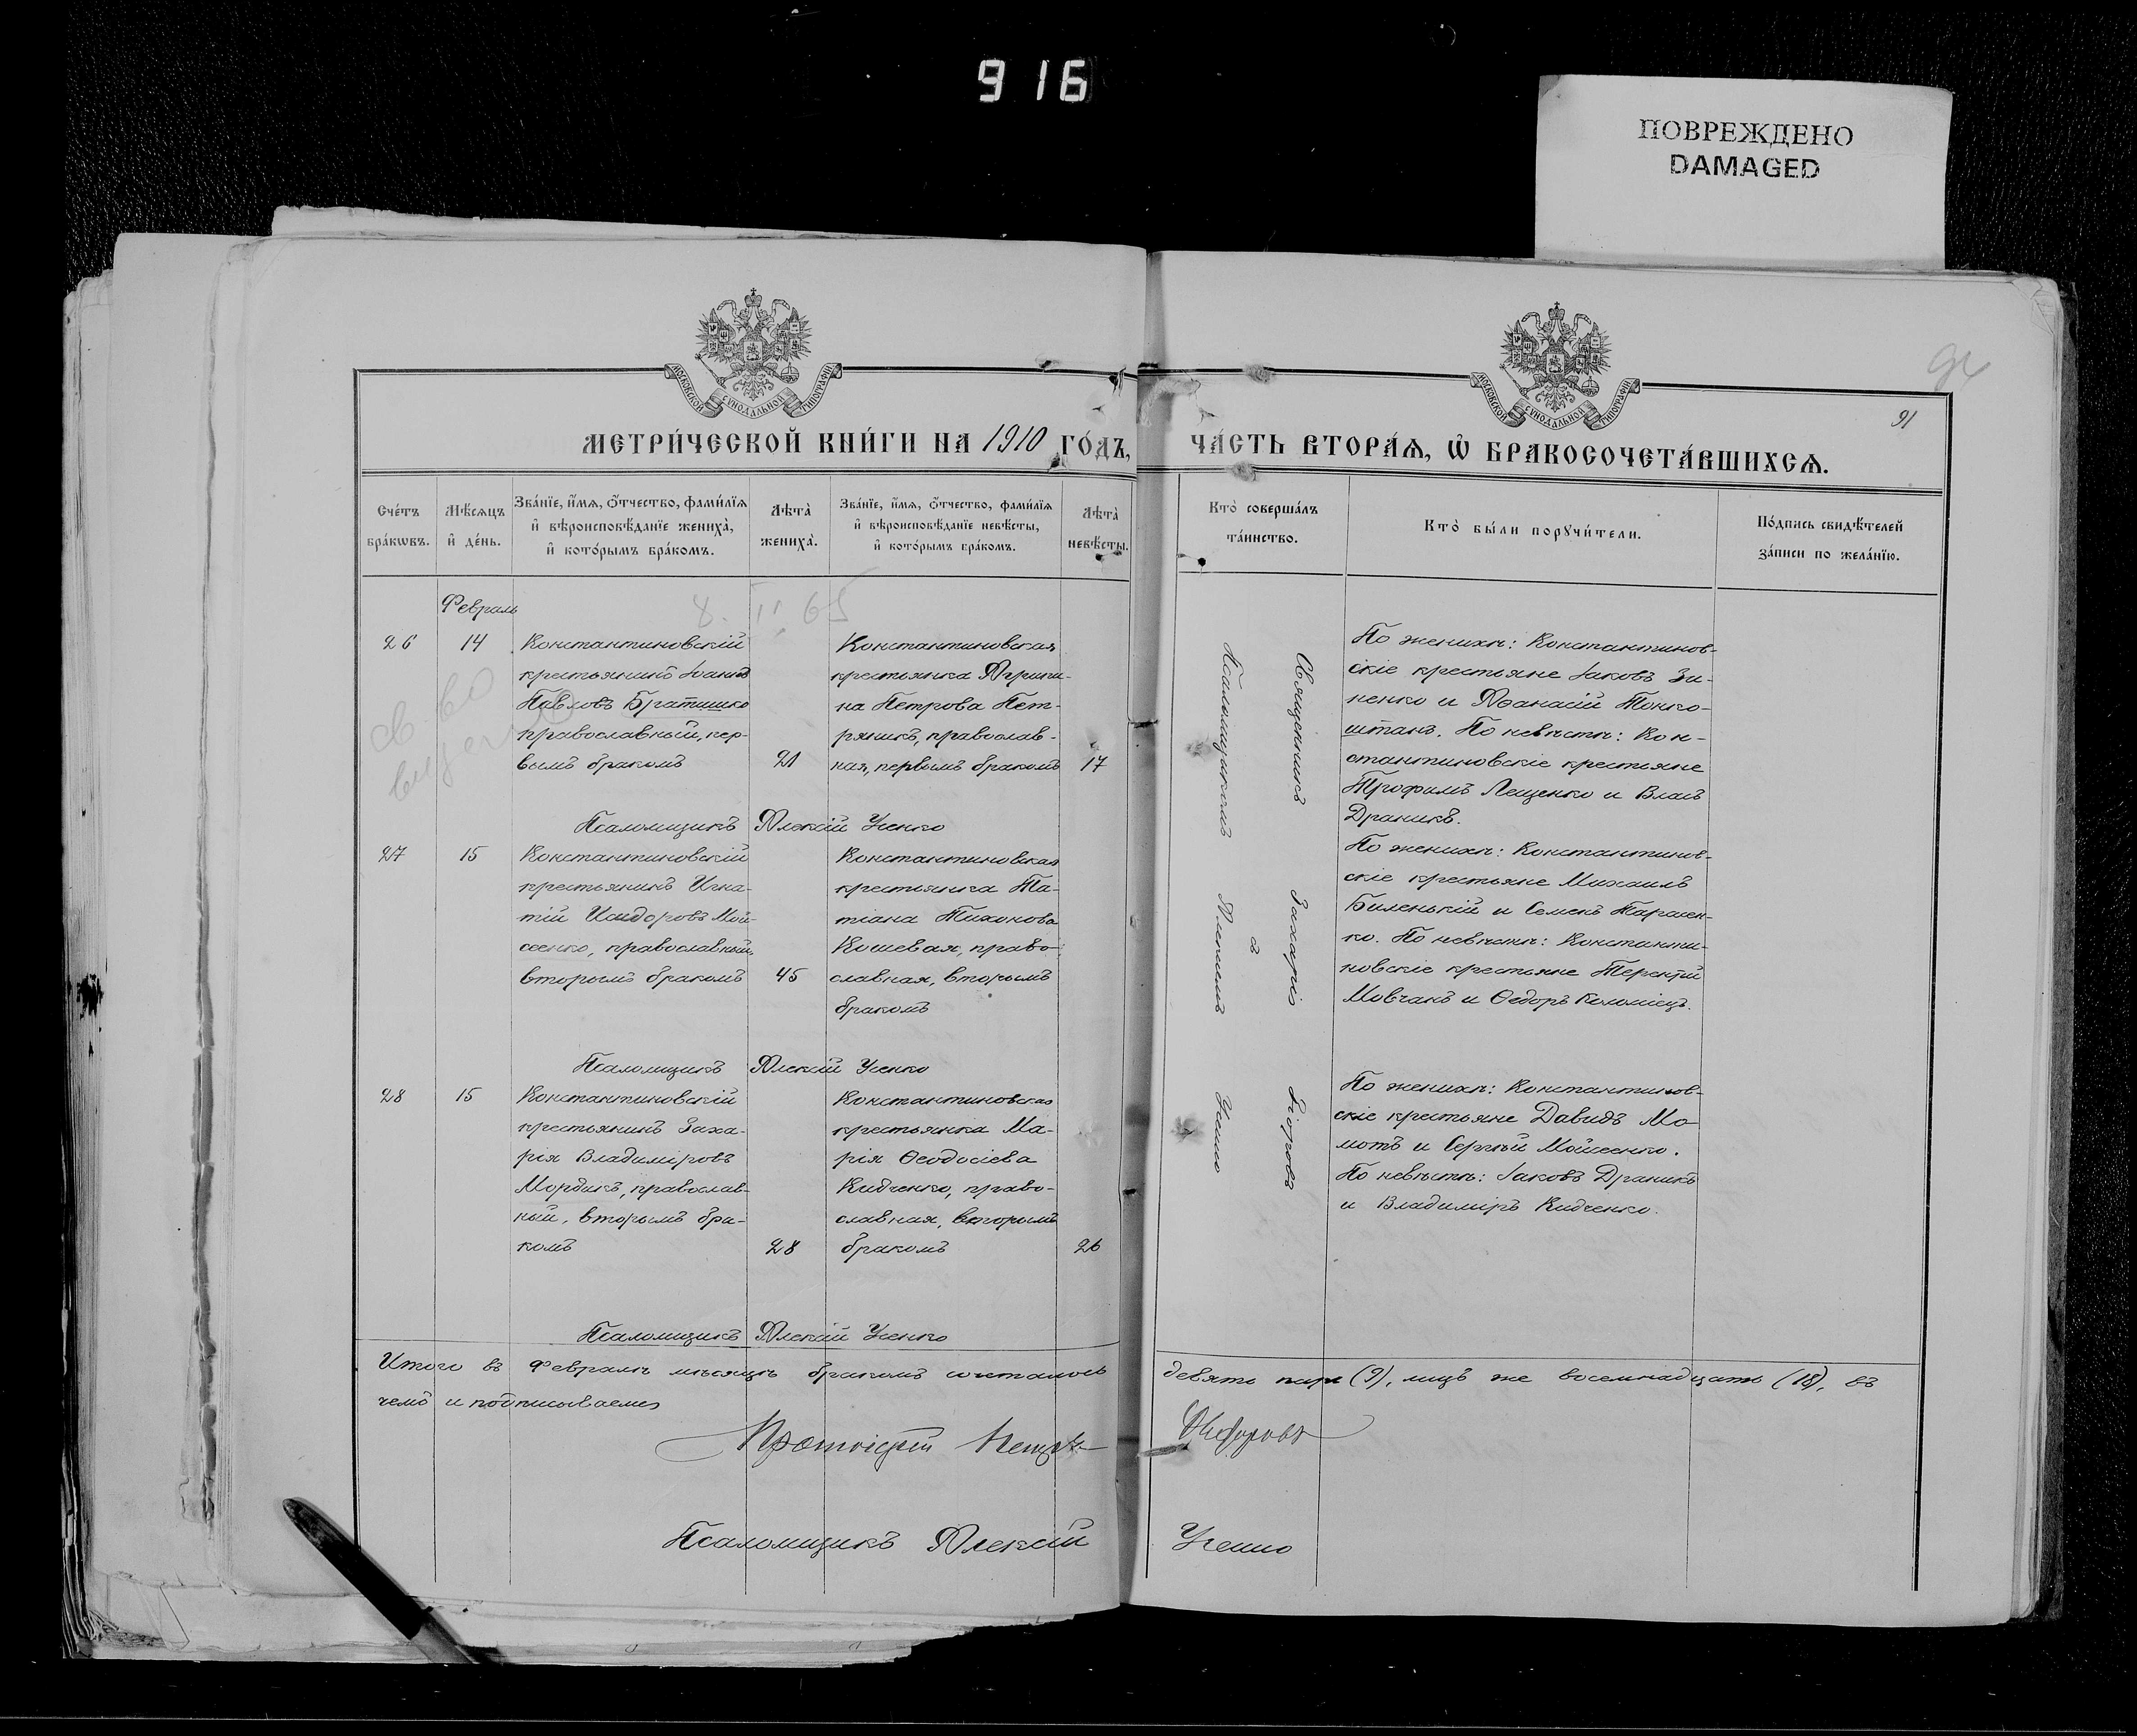 916
ПОВРЕЖДЕНО
DAMAGED
МОСКОВСКОЙ СѴНОДАЛЬНОЙ ТИПОГРАФІИ
МОСКОВСКОЙ СѴНОДАЛЬНОЙ ТИПОГРАФІИ
91
МЕТРИ́ЧЕСКОЙ КНИ́ГИ НА 1910 ГО́ДЪ,
ЧА́СТЬ ВТОРА́Ѧ, Ѡ҆ БРАКОСОЧЕТА́ВШИХСѦ.
Сче́тъ
бра́кѡвъ.
Мѣ́сѧцъ
и҆ де́нь.
Зва́нїе, и҆́мѧ, ѻ҆́тчество, фами́лїѧ
и҆ вѣроисповѣ́данїе жениха̀,
и҆ кото́рымъ бра́комъ.
Лѣта̀
жениха̀.
Зва́нїе, и҆́мѧ, ѻ҆́тчество, фами́лїѧ
и҆ вѣроисповѣ́данїе невѣ́сты,
и҆ кото́рымъ бра́комъ.
Лѣта̀
невѣ́сты.
Кто̀ соверша́лъ
та́инство.
Кто̀ бы́ли порꙋчи́тели.
По́дпись свидѣ́телей
за́писи по жела́нїю.
8. II 65
Февраль
26
14
Константиновскій
крестьянинъ Іоаннъ
Павловъ Братишко
православный, пер-
вымъ бракомъ
21
Константиновская
крестьянка Агрипи-
на Петрова Пет-
ряникъ, православ-
ная, первымъ бракомъ
17
По женихѣ: Константинов-
скіе крестьяне Іаковъ Зи-
ненко и Аѳанасій Тонко-
штанъ. По невѣстѣ: Кон-
стантиновскіе крестьяне
Трофимъ Лещенко и Власъ
Драникъ.
Псаломщикъ Алексій Усенко
27
15
Константиновскій
крестьянинъ Игна-
тій Исидоровъ Мой-
сеенко, православный,
вторымъ бракомъ
45
Константиновская
крестьянка Та-
тіана Тихонова
Кошевая, право-
славная, вторымъ
бракомъ
По женихѣ: Константинов-
скіе крестьяне Михаилъ
Биленькій и Семенъ Тарасен-
ко. По невѣстѣ: Константи-
новскіе крестьяне Терентій
Мовчанъ и Ѳедоръ Коломіецъ.
Псаломщикъ Алексій Усенко
28
15
Константиновскій
крестьянинъ Заха-
рія Владиміровъ
Мордикъ, православ-
ный, вторымъ бра-
комъ
28
Константиновская
крестьянка Ма-
рія Ѳеодосіева
Кидченко, право-
славная, вторымъ
бракомъ
26
По женихѣ: Константинов-
скіе крестьяне Давидъ Мо-
мотъ и Сергѣй Мойсеенко.
По невѣстѣ: Іаковъ Драникъ
и Владиміръ Кидченко.
Псаломщикъ Алексій Усенко
Священникъ Захарія
съ
Псаломщикомъ Алексіемъ Усенко
Итого въ Февралѣ мѣсяцѣ бракомъ сочеталось девять паръ (9), лицъ же восемнадцать (18), въ
чемъ и подписываемся
Протоіерей Петръ
Псаломщикъ Алексій Усенко